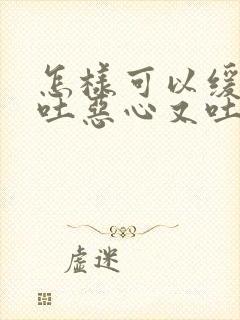 怎樣可以緩
吐惡心又吐
虛迷